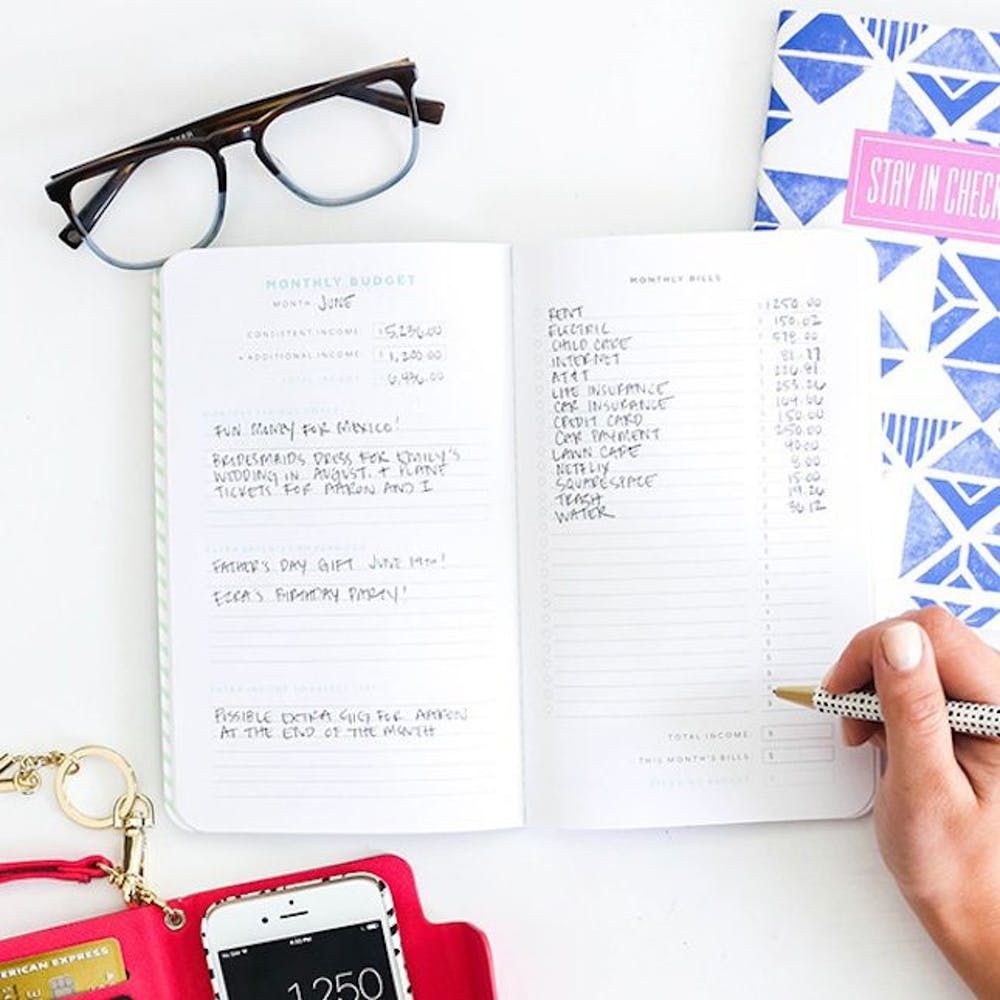 STAY IN CHECK
MONTHLY BUDGET
MONTH: JUNE
CONSISTENT INCOME $5,236.00
+ ADDITIONAL INCOME $1,200.00
TOTAL INCOME 6,436.00
FUN MONEY FOR MEXICO!
BRIDESMAIDS DRESS FOR EMILY'S
WEDDING IN AUGUST. + PLANE
TICKETS FOR AARON AND I
FATHER'S DAY GIFT JUNE 19TH!
EZRA'S BIRTHDAY PARTY!
POSSIBLE EXTRA GIG FOR AARON
AT THE END OF THE MONTH
MONTHLY BILLS
RENT 1250.00
ELECTRIC 150.02
CHILD CARE 575.00
INTERNET
AT&T
LIFE INSURANCE
CAR INSURANCE
CREDIT CARD 150.00
CAR PAYMENT 250.00
LAWN CARE
NETFLIX 8.00
SQUARESPACE 15.00
TRASH 19.26
WATER 36.12
TOTAL INCOME $
THIS MONTH'S BILLS $
ERICAN EXPRESS
1250